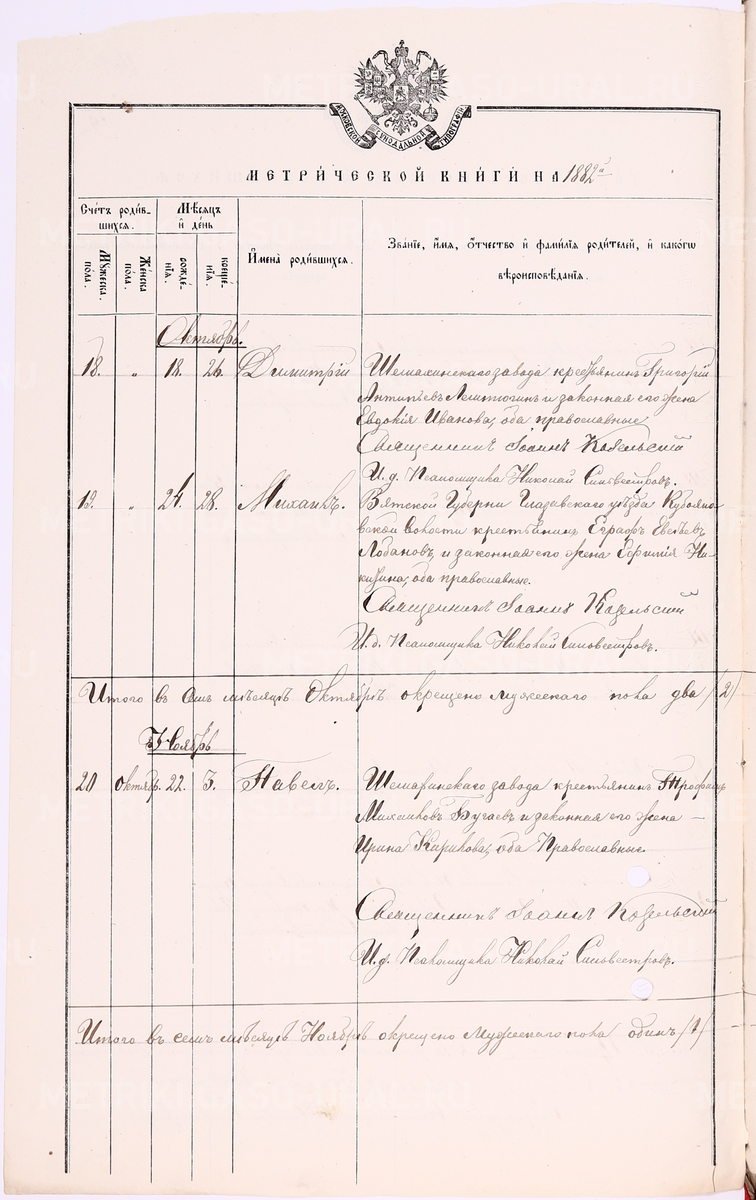 МОСКОВСКОЙ СѴНОДАЛЬНОЙ ТИПОГРАФІИ
МЕТРИ́ЧЕСКОЙ КНИ́ГИ НА 1882й
Сче́тъ роди́в-
шихся.
Му́жеска
по́ла.
Же́нска
по́ла.
Мѣ́сяцъ
и де́нь
рожде́-
нїя.
креще́-
нїя.
Имена̀ роди́вшихся.
Зва́нїе, и́мя, ѻ́тчество и фами́лїя роди́телей, и како́гѡ
вѣроисповѣ́данїя.
Октябрь.
18. „ 18. 24. Димитрій Шемахинскаго завода крестьянинъ Григорій
Антипьевъ и законная его жена
Евдокія Иванова, оба православные
Священникъ Іоаннъ Козельскій
И. д. Псаломщика Николай Сильвестровъ.
19. „ 24. 28. Михаилъ. Вятской Губерніи Глазовскаго уѣзда
волости крестьянинъ Евграфъ
Лобановъ и законная его жена Ни-
оба православные.
Священникъ Іоаннъ Козельскій
И. д. Псаломщика Николай Сильвестровъ.
Итого въ семъ мѣсяцѣ Октябрѣ окрещено мужескаго пола два /2/
Ноябрь
20 октябр. 22. 3. Павелъ. завода крестьянинъ Трофимъ
Михаиловъ Бугаевъ и законная его жена —
Ирина Кирилова, оба Православные.
Священникъ Іоаннъ Козельскій
И. д. Псаломщика Николай Сильвестровъ.
Итого въ семъ мѣсяцѣ Ноябрѣ окрещено Мужескаго пола одинъ /1/